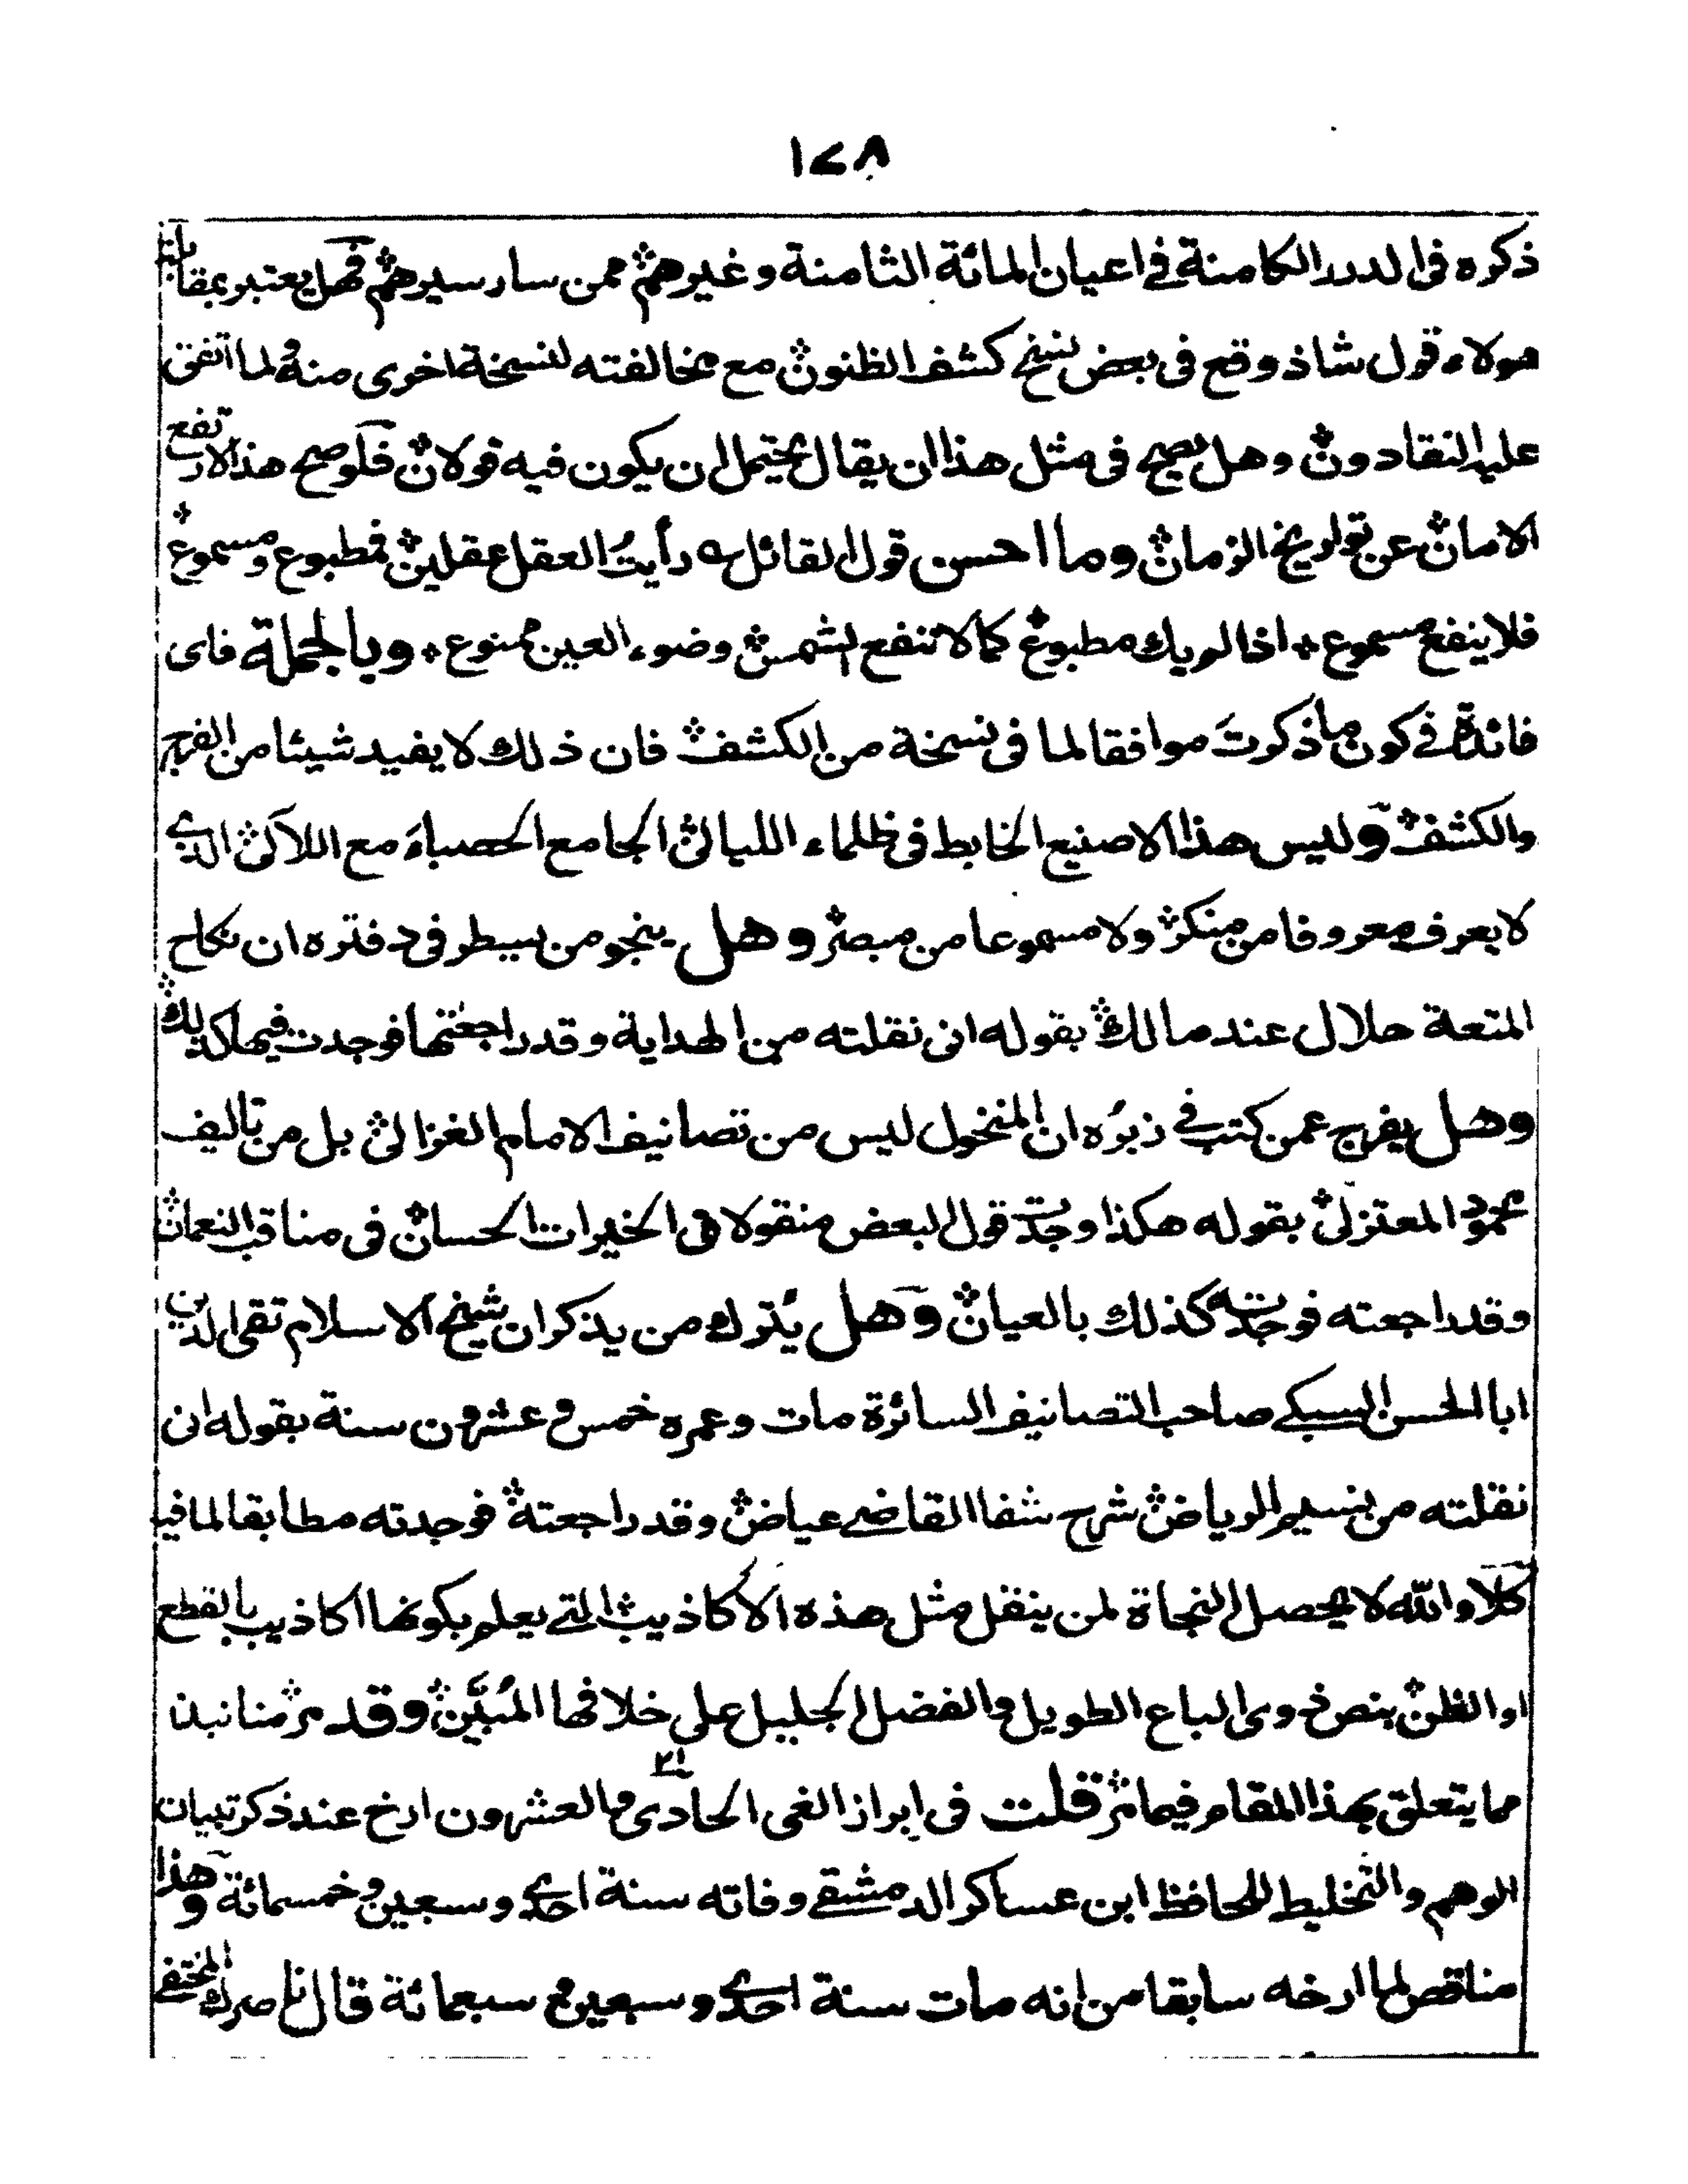 ١٧٨
ذكره فى الدرر الكامنة فى اعيان المائة الثامنة وغيرهم ممن سار سيرهم فهل يعتبر بمقابلة
هولاء قول شاذ وقع فى بعض نسخ كشف الظنون مع مخالفته لنسخة اخرى منه ولما اتفق
عليه النقادون وهل يصح فى مثل هذا ان يقال يحتمل ان يكون فيه قولان فلو صح هذا لارتفع
الامان عن تواريخ الزمان وما احسن قول القائل رأيتُ العقل عقلين فمطبوع ومسموع
فلا ينفع مسموع اذا لم يك مطبوع كما لا تنفع الشمس وضوء العين ممنوع وبالجملة فاى
فائدة فى كون ما ذكرتَ موافقا لما فى نسخة من الكشف فان ذلك لا يفيد شيئا من الفرج
والكشف وليس هذا الا صنيع الخابط فى ظلماء الليالى الجامع الحصباءَ مع اللآلى الذى
لا يعرف معروفا من منكر ولا مسموعا من مبصر وهل ينجو من يسطر فى دفتره ان نكاح
المتعة حلال عند مالك بقوله انى نقلته من الهداية وقد راجعتها فوجدت فيها كذلك
وهل يفرج عمن كتب فى زبُره ان المنخول ليس من تصانيف الامام الغزالى بل من تاليف
محمود المعتزلى بقوله هكذا وجدت قول البعض منقولا فى الخيرات الحسان فى مناقب النعمان
وقد راجعته فوجدته كذلك بالعيان وهل يُترك من يذكر ان شيخ الاسلام تقى الدين
ابا الحسن السبكى صاحب التصانيف السائرة مات وعمره خمس وعشرون سنة بقوله انى
نقلته من نسيم الرياض شرح شفا القاضى عياض وقد راجعته فوجدته مطابقا لما فيه
كلا والله لا يحصل النجاة لمن ينقل مثل هذه الاكاذيب التى يعلم بكونها اكاذيب بالقطع
او الظن بنص ذوى الباع الطويل والفضل الجليل على خلافها المُبَيَّن وقد مر منا نبذ
مما يتعلق بهذا المقام فيما مر قلت فى ابراز الغى الحادى والعشرون ارخ عند ذكر تبيان
٢١
الوهم والتخليط للحافظ ابن عساكر الدمشقى وفاته سنة احدى وسبعين وخمسمائة وهذا
مناقض لما ارخه سابقا من انه مات سنة احدى وسبعين وسبعمائة قال ناصرك المختفى